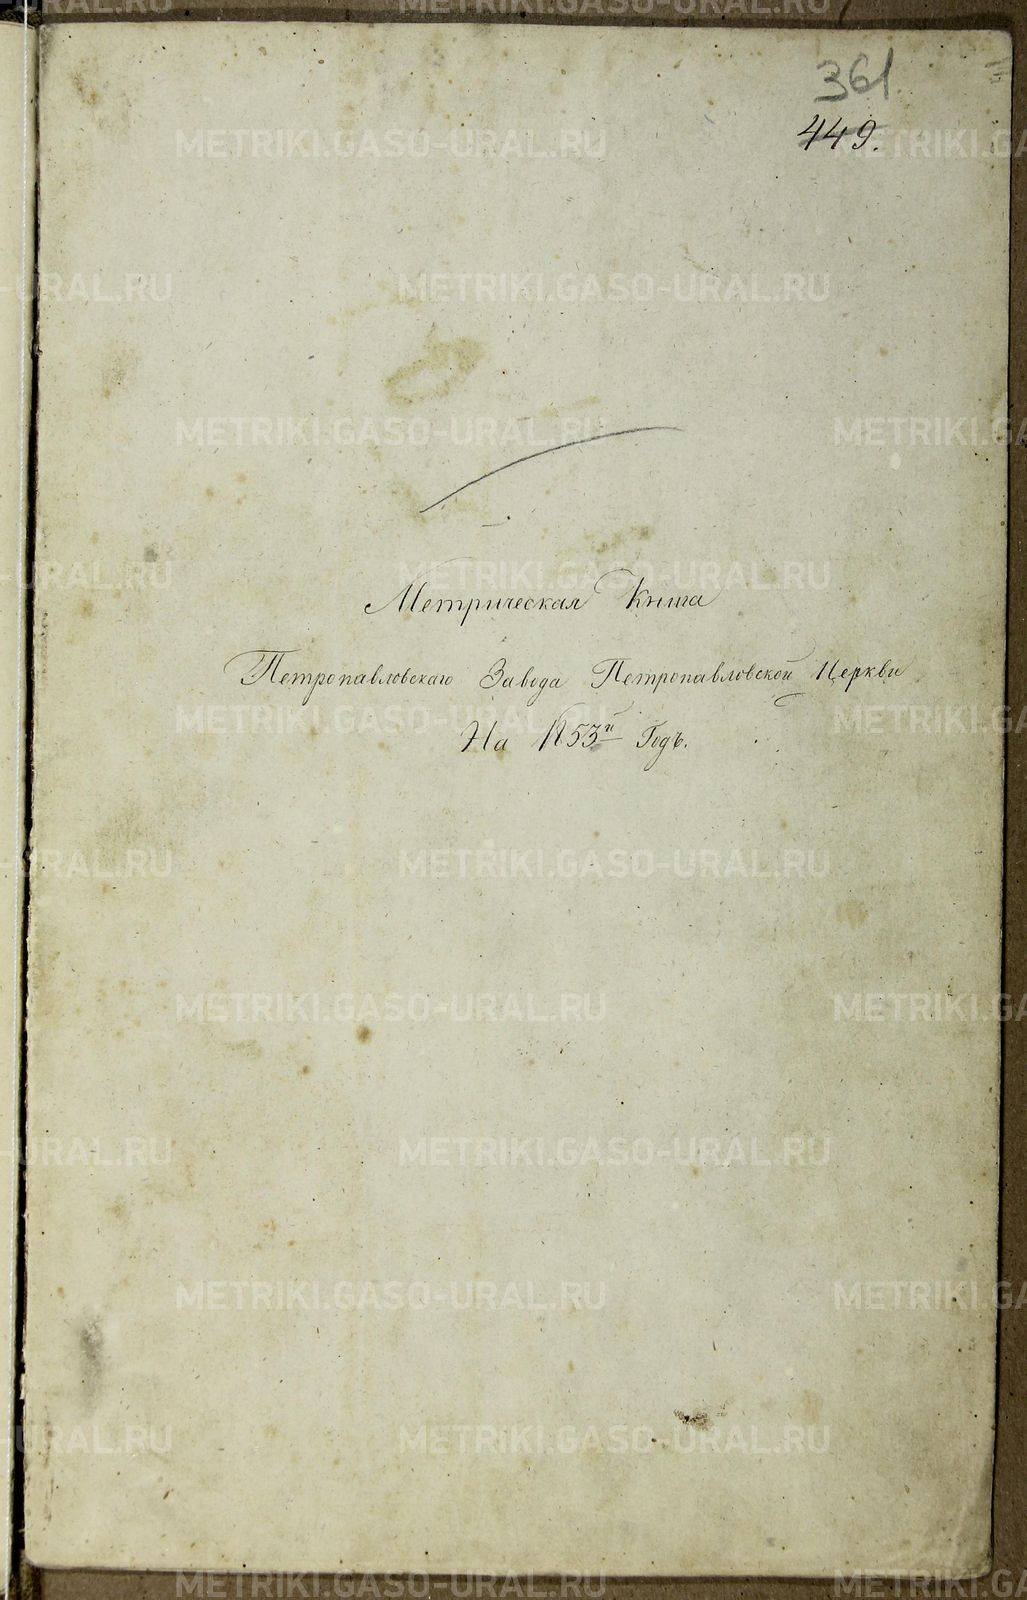 361
449.
Метрическая Книга
Петропавловскаго Завода Петропавловской Церкви
На 1853й Годъ.
METRIKI.GASO-URAL.RU